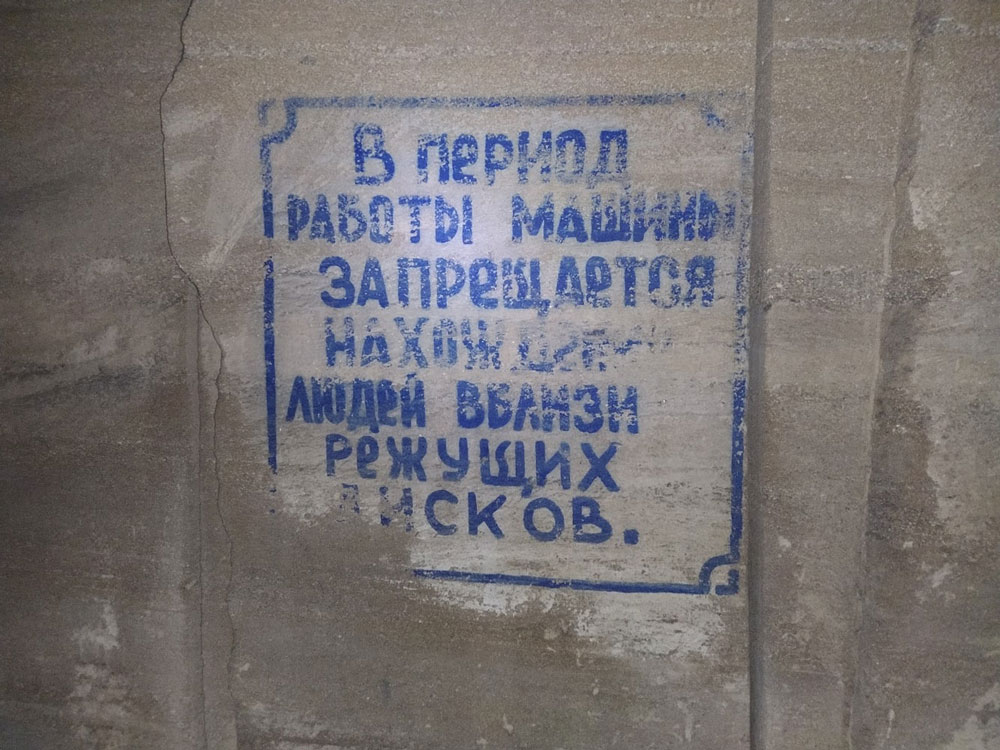 В ПЕРИОД
РАБОТЫ МАШИНЫ
ЗАПРЕЩАЕТСЯ
НАХОЖДЕНИЕ
ЛЮДЕЙ ВБЛИЗИ
РЕЖУЩИХ
ДИСКОВ.